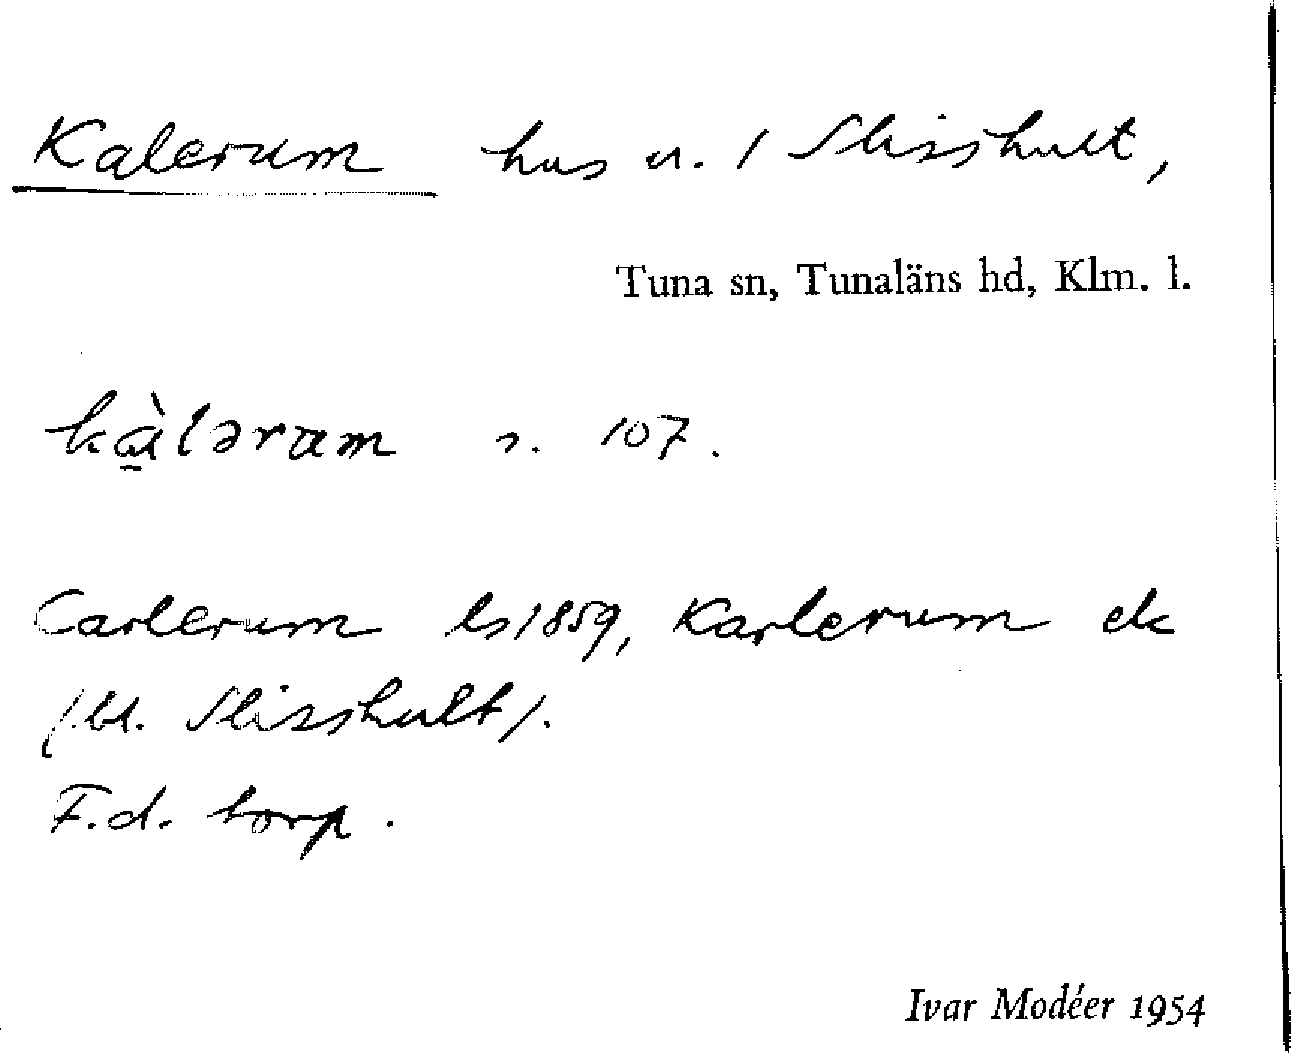 Kalerum hus u. / Slisshult,
Tuna sn, Tunaläns hd, Klm. l.
kàləram s. 107.
Carlerum ls 1859, Karlerum ek
(bl. Slisshult).
F.d. torp.
Ivar Modéer 1954